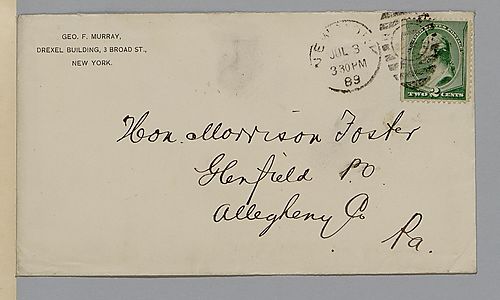 GEO. F. MURRAY,
DREXEL BUILDING, 3 BROAD ST.,
NEW YORK.
JUL 3
330PM
89
TWO 2 CENTS
Hon. Morrison Foster
Glenfield P.O.
Allegheny Co
Pa.